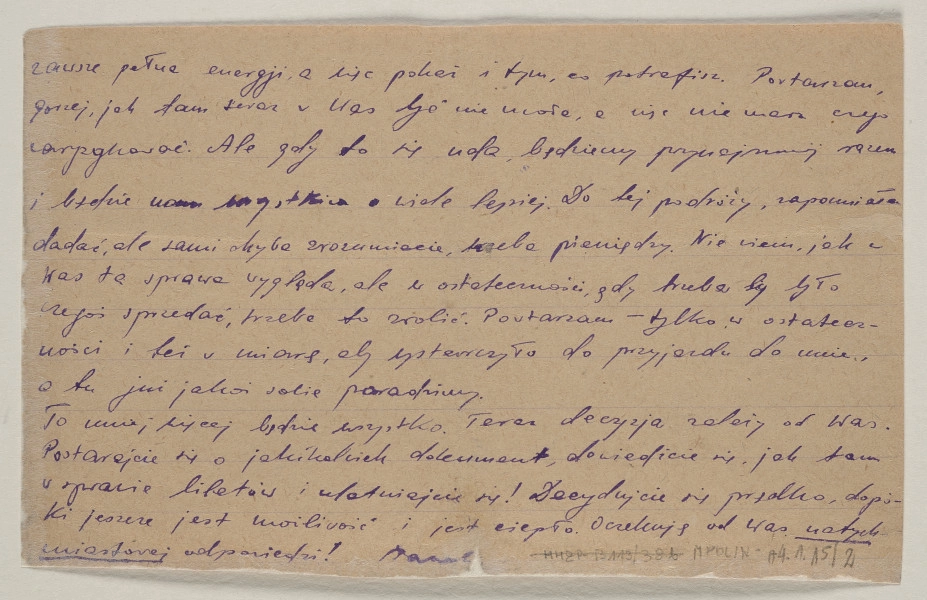 zawsze pełna energji, a więc pokaż i tym, co potrafisz. Powtarzam,
gorzej, jak tam teraz u Was być nie może, a więc nie masz czego
ryzykować. Ale gdy to się uda, będziemy przynajmniej razem
i będzie nam wszystkim o wiele lepiej. Do tej podróży, zapomniałem
dodać, ale sami chyba zrozumiecie, trzeba pieniędzy. Nie wiem, jak u
Was ta sprawa wygląda, ale w ostateczności, gdy trzeba by było
czegoś sprzedać, trzeba to zrobić. Powtarzam – tylko w ostatecz-
ności i też w miarę, aby wystarczyło do przyjazdu do mnie,
a tu już jakoś sobie poradzimy.
To mniej więcej będzie wszystko. Teraz decyzja zależy od Was.
Postarajcie się o jakikolwiek dokument, dowiedzcie się, jak tam
w sprawie biletów i ulatniajcie się! Decydujcie się prędko, dopó-
ki jeszcze jest możliwość i jest ciepło. Oczekuję od Was natych-
miastowej odpowiedzi!
MHŻP-B113/38b MPOLIN-A4.1.15/2